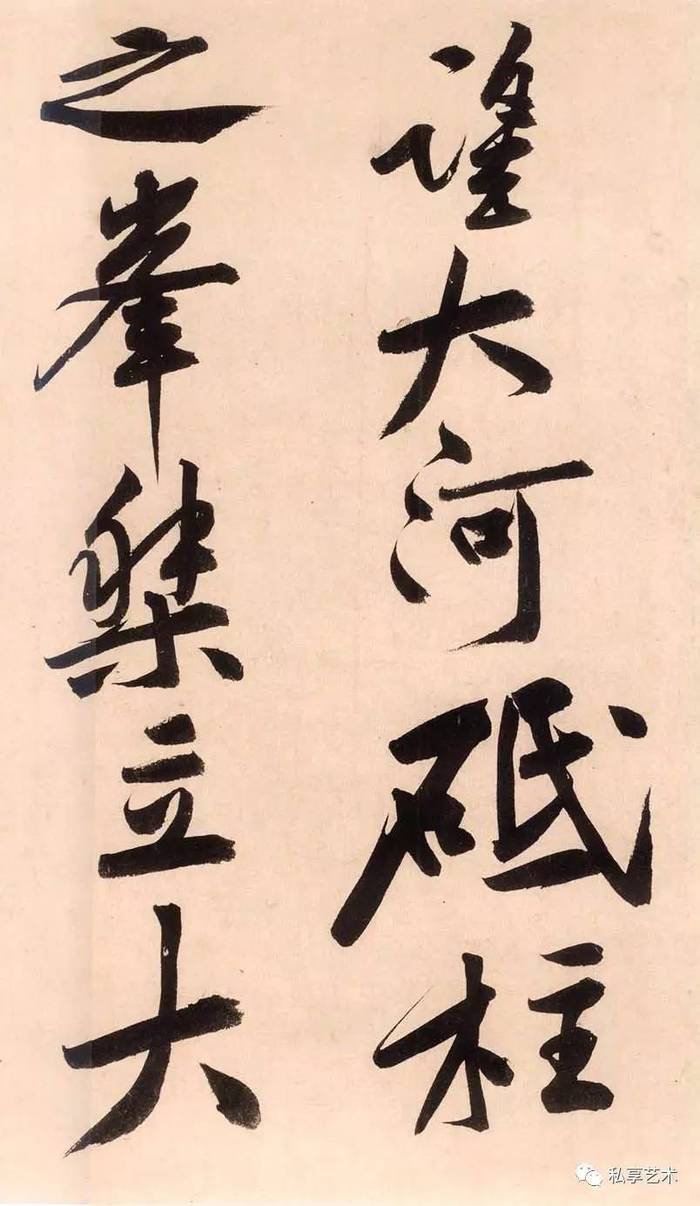 大河砥柱
之峯桀立大
私享艺术